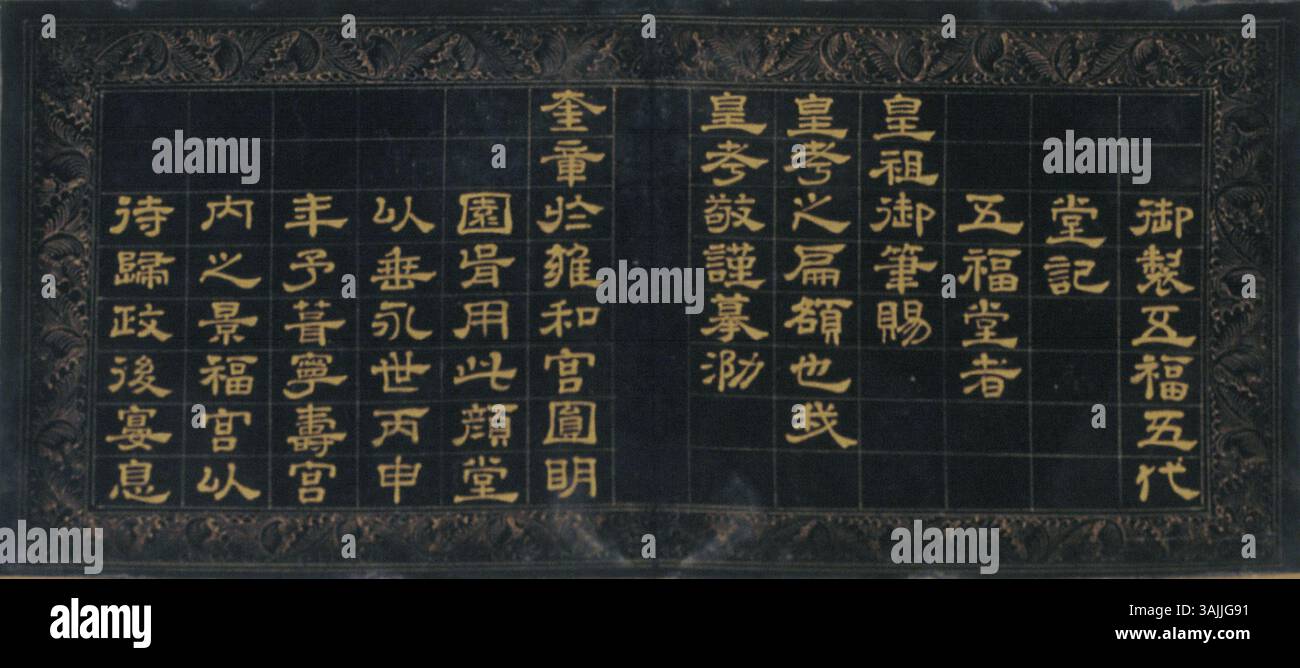 御製五福五代
堂記
五福堂者
皇祖御筆賜
皇考之扁額也我
皇考敬謹摹泐
奎章於雍和宮圓明
園胥用此顏堂
以垂永世丙申
年予葺寧壽宮
内之景福宮以
待歸政後宴息
alamy
Image ID: 3AJJG91
www.alamy.com